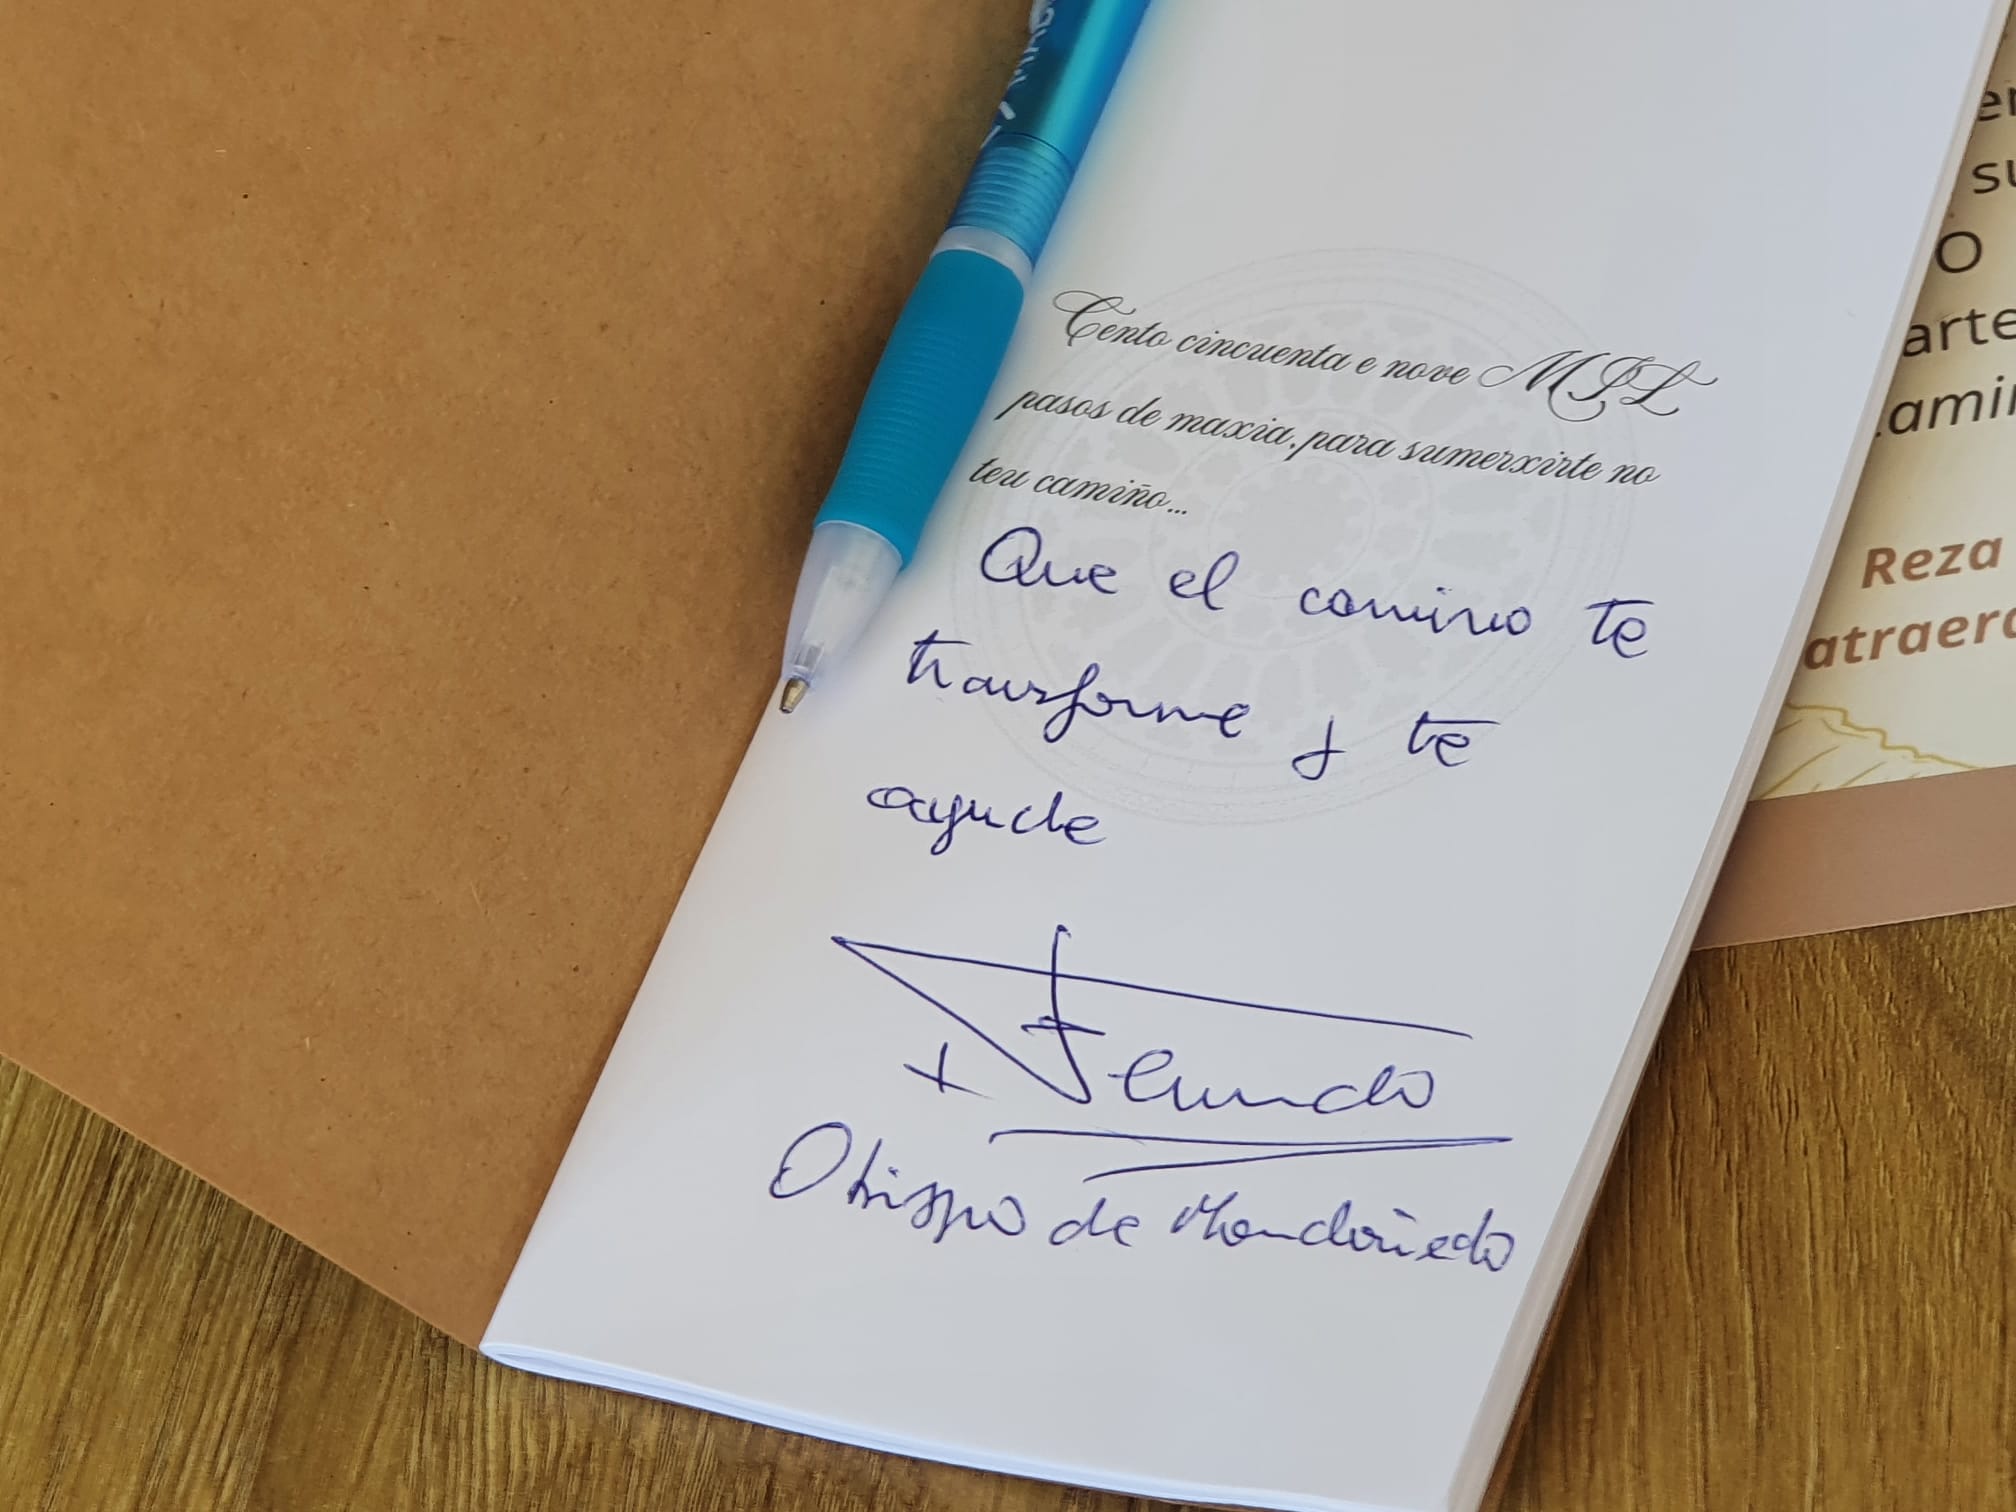 Cento cincuenta e nove MIL
pasos de maxia, para sumerxirte no
teu camiño...
Que el camino te
transforme y te
ayude
+ Fernando
Obispo de Mondoñedo
O
arte
Reza
atraerá